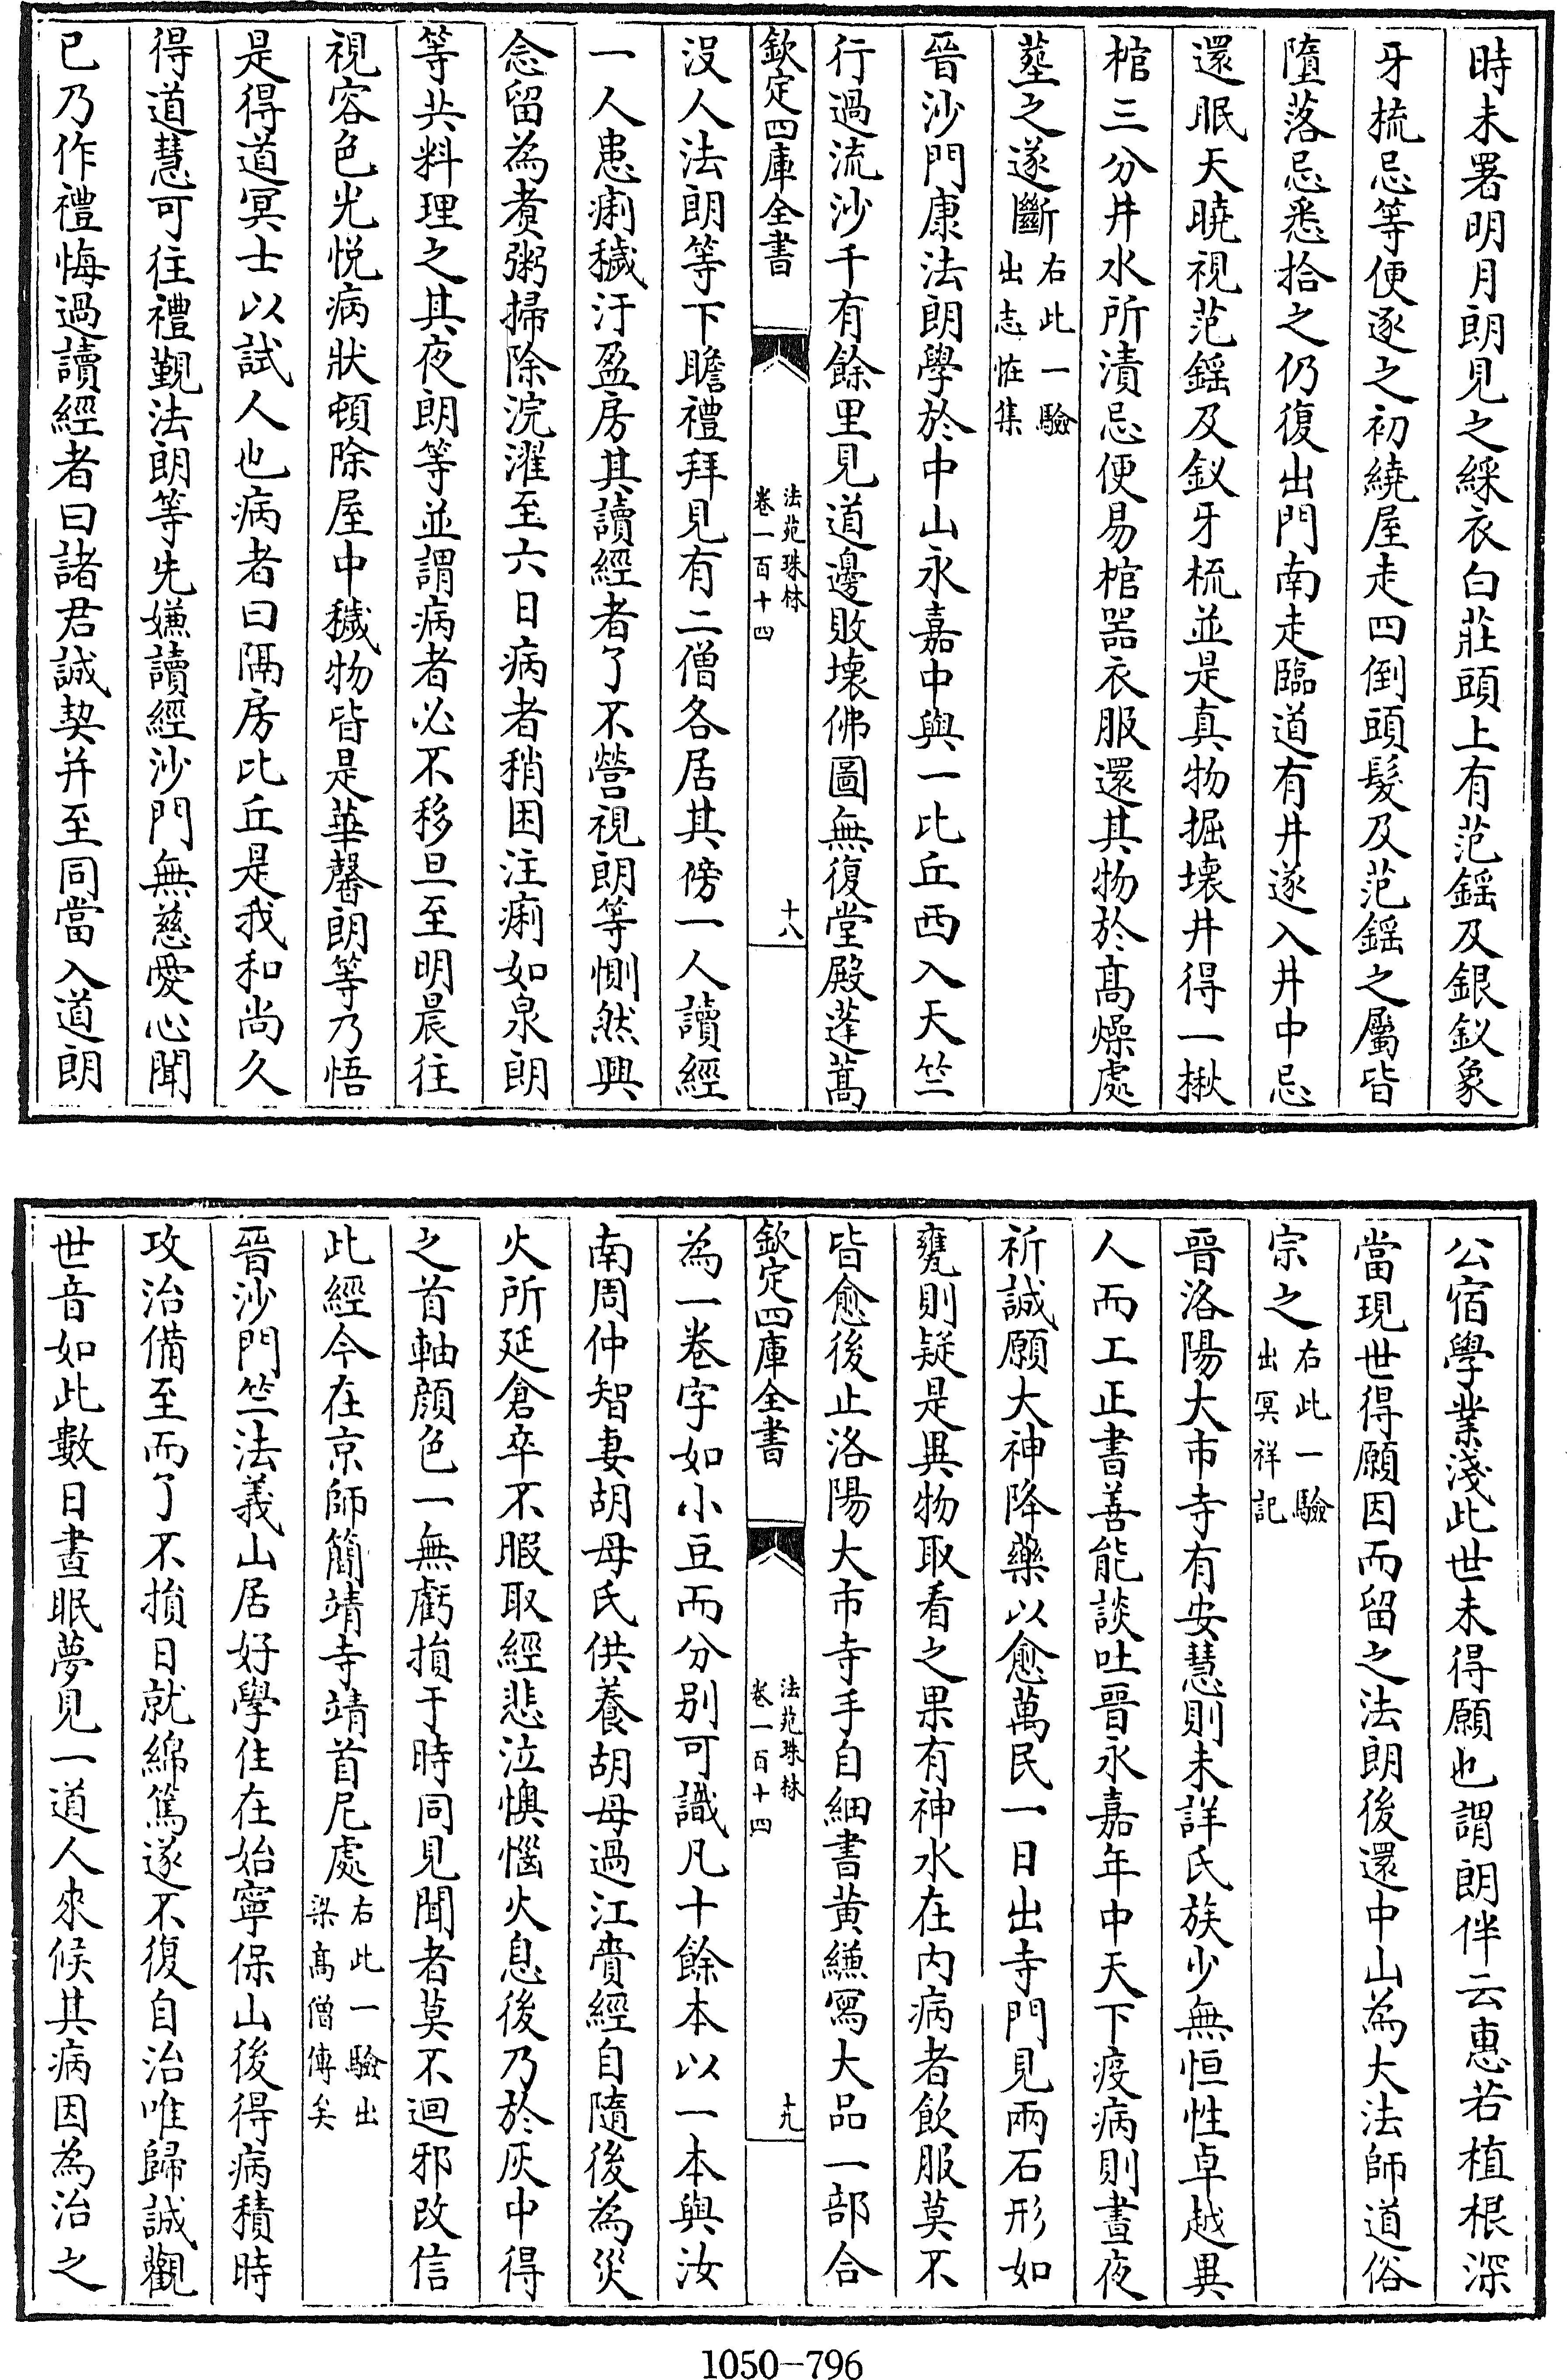 時未署明月朗見之綵衣白莊頭上有范鎐及銀釵象
牙梳忌等便逐之初繞屋走四倒頭髮及范鎐之屬皆
墮落忌悉拾之仍復出門南走臨道有井遂入井中忌
還眠天曉視范鎐及釵牙梳並是真物掘壞井得一楸
棺三分井水所漬忌便易棺器衣服還其物於髙燥處
塟之遂斷右此一驗
出志恠集
晉沙門康法朗學於中山永嘉中與一比丘西入天竺
行過流沙千有餘里見道邊敗壞佛圖無復堂殿蓬蒿
欽定四庫全書
法苑珠林
卷一百十四
十八
沒人法朗等下瞻禮拜見有二僧各居其傍一人讀經
一人患痢穢汙盈房其讀經者了不營視朗等惻然興
念留為煑粥掃除浣濯至六日病者稍困注痢如泉朗
等共料理之其夜朗等並謂病者必不移旦至明晨往
視容色光悅病狀頓除屋中穢物皆是華馨朗等乃悟
是得道冥士以試人也病者曰隔房比丘是我和尚久
得道慧可往禮覲法朗等先嫌讀經沙門無慈愛心聞
已乃作禮悔過讀經者曰諸君誠契并至同當入道朗
公宿學業淺此世未得願也謂朗伴云惠若植根深
當現世得願因而留之法朗後還中山為大法師道俗
宗之右此一驗
出冥祥記
晉洛陽大市寺有安慧則未詳氏族少無恒性卓越異
人而工正書善能談吐晉永嘉年中天下疫病則晝夜
祈誠願大神降藥以愈萬民一日出寺門見兩石形如
甕則疑是異物取看之果有神水在內病者飲服莫不
皆愈後止洛陽大市寺手自細書黃縑寫大品一部合
欽定四庫全書
法苑珠林
卷一百十四
十九
為一卷字如小豆而分别可識凡十餘本以一本與汝
南周仲智妻胡母氏供養胡母過江賷經自隨後為災
火所延倉卒不暇取經悲泣懊惱火息後乃於灰中得
之首軸顔色一無虧損于時同見聞者莫不迴邪改信
此經今在京師簡靖寺靖首尼處右此一驗出
梁髙僧傳矣
晉沙門竺法義山居好學住在始寧保山後得病積時
攻治備至而了不損日就綿篤遂不復自治唯歸誠觀
世音如此數日晝眠夢見一道人來候其病因為治之
1050-796